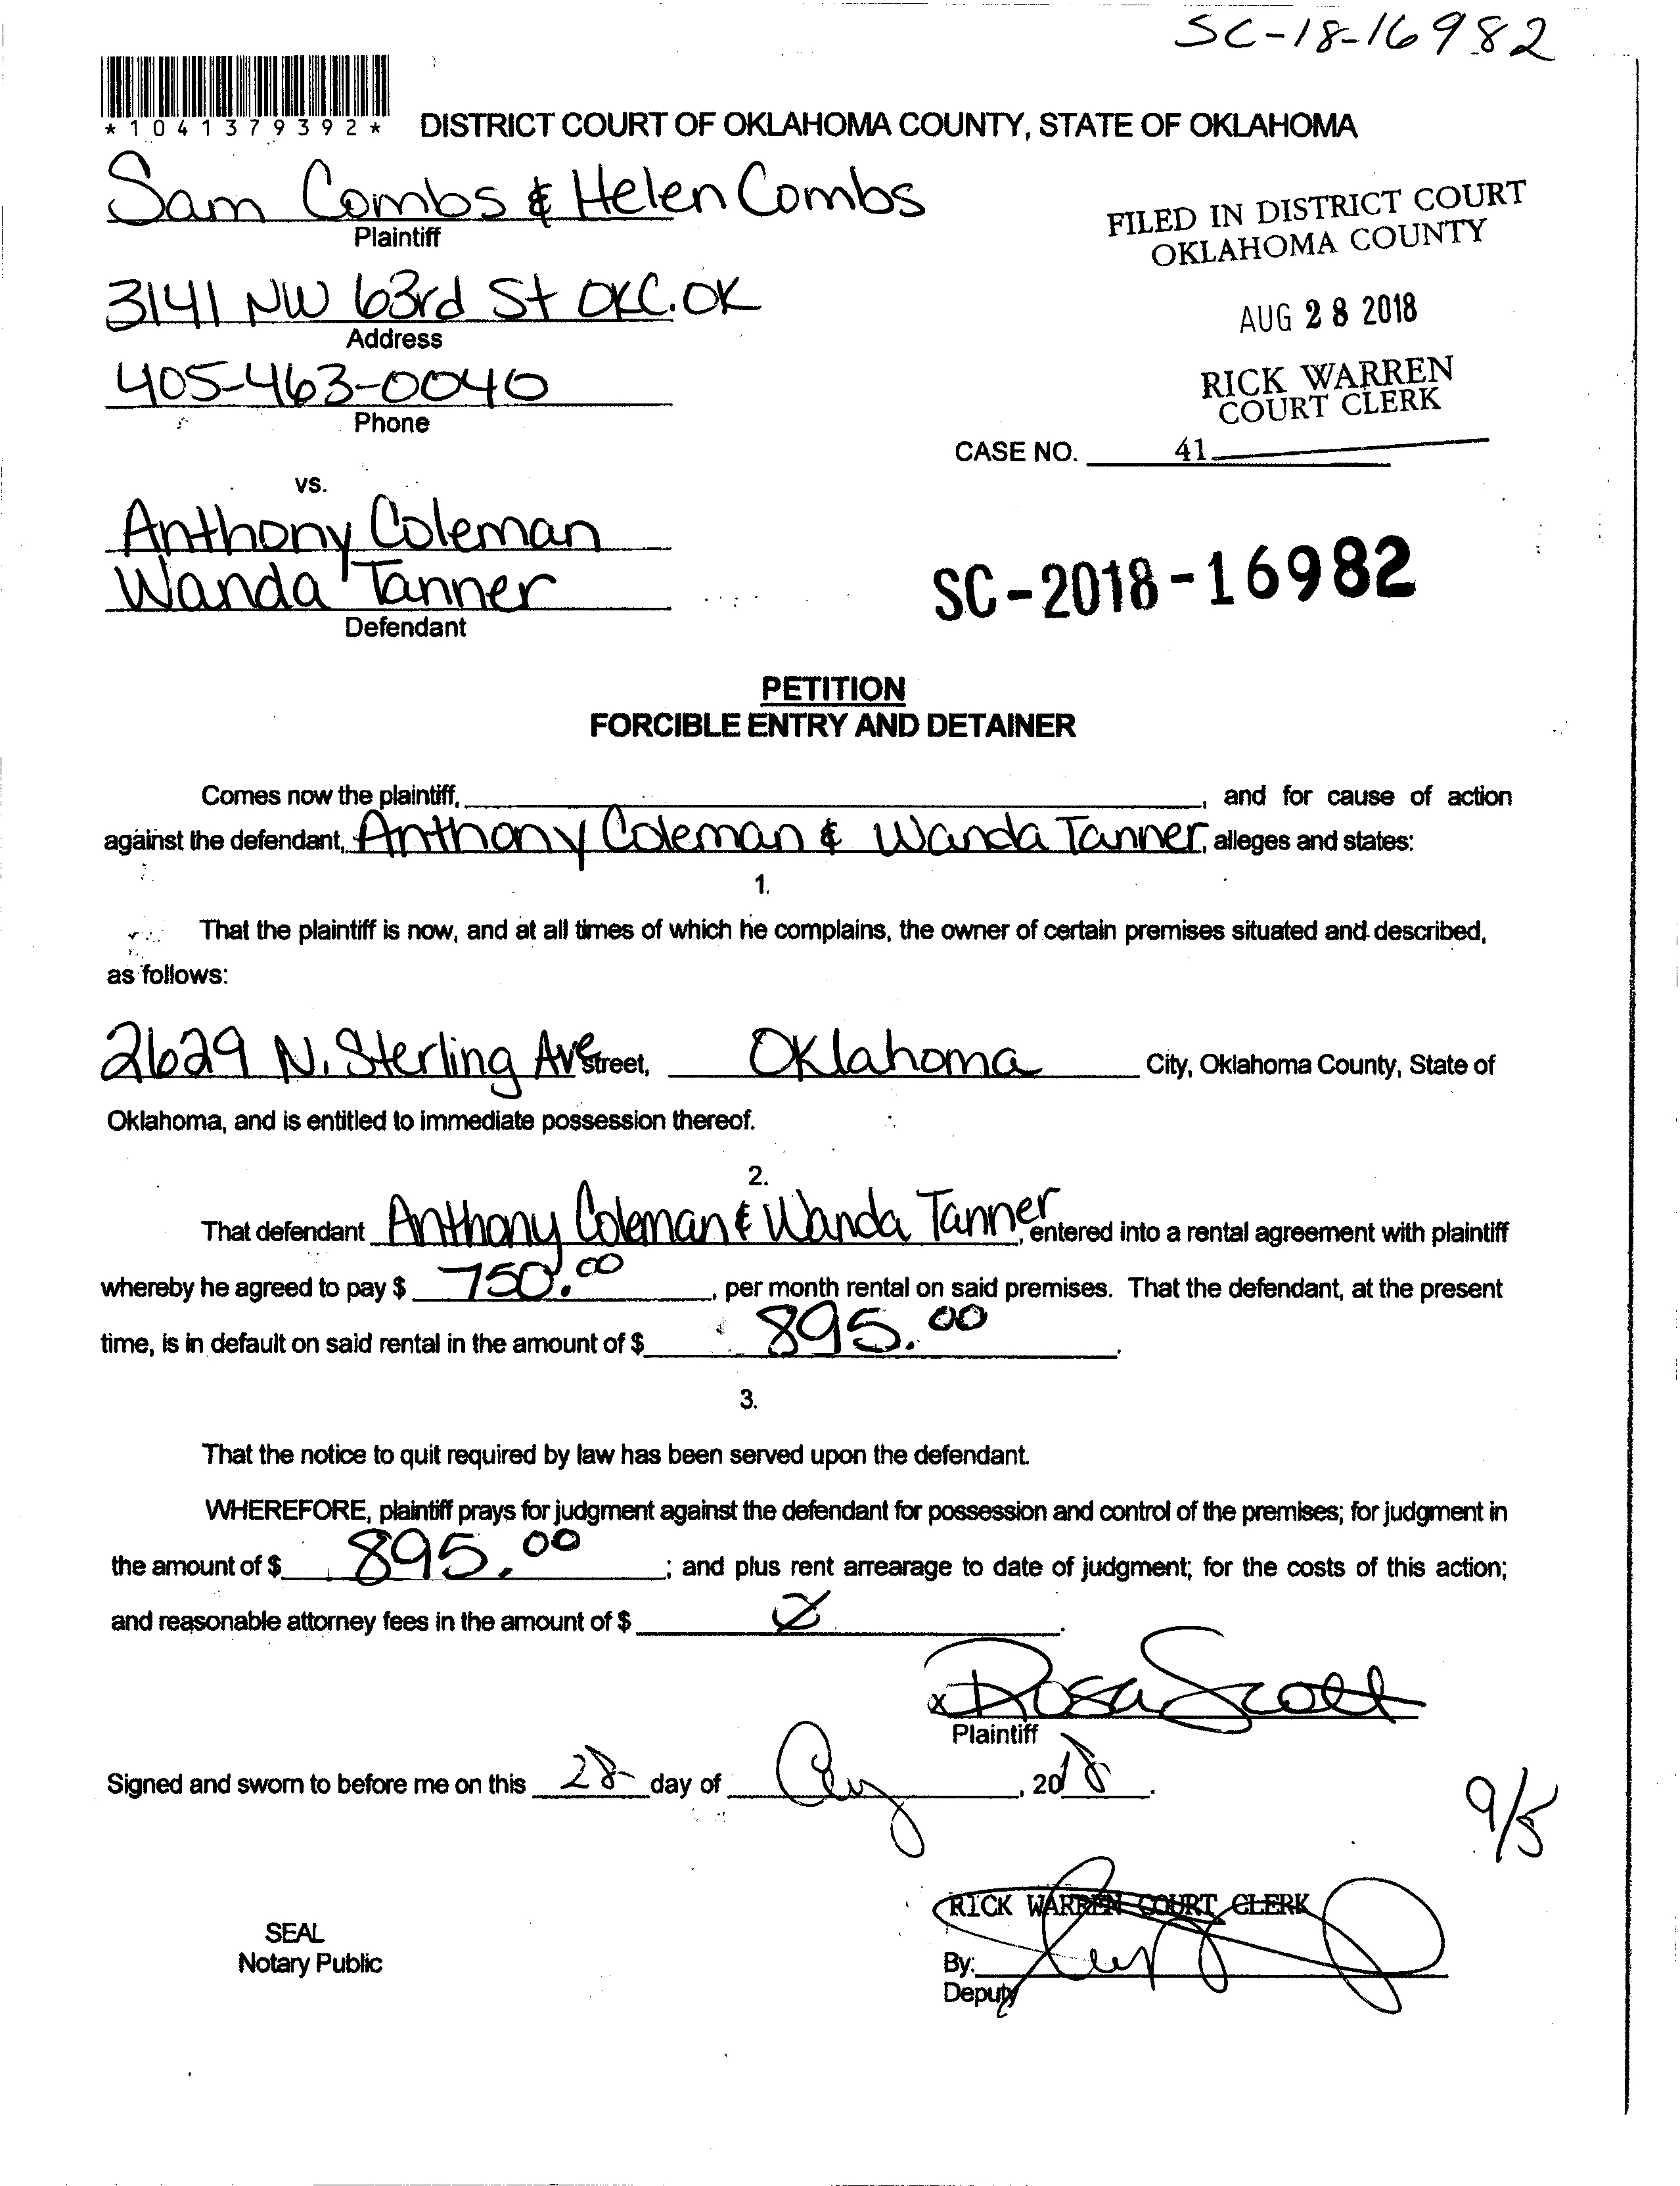 SC-18-16982
*1041379392*
DISTRICT COURT OF OKLAHOMA COUNTY, STATE OF OKLAHOMA
Sam Combs & Helen Combs
Plaintiff
FILED IN DISTRICT COURT
OKLAHOMA COUNTY
3141 NW 63rd St OKC. OK
Address
AUG 28 2018
405-463-0040
Phone
RICK WARREN
COURT CLERK
CASE NO. 41
vs.
Anthony Coleman
Wanda Tanner
Defendant
SC-2018-16982
PETITION
FORCIBLE ENTRY AND DETAINER
Comes now the plaintiff, , and for cause of action
against the defendant, Anthony Coleman & Wanda Tanner, alleges and states:
1.
That the plaintiff is now, and at all times of which he complains, the owner of certain premises situated and described,
as follows:
2629 N. Sterling Ave Street, Oklahoma City, Oklahoma County, State of
Oklahoma, and is entitled to immediate possession thereof.
2.
That defendant Anthony Coleman & Wanda Tanner, entered into a rental agreement with plaintiff
whereby he agreed to pay $ 750.00, per month rental on said premises. That the defendant, at the present
time, is in default on said rental in the amount of $ 895.00.
3.
That the notice to quit required by law has been served upon the defendant.
WHEREFORE, plaintiff prays for judgment against the defendant for possession and control of the premises; for judgment in
the amount of $ 895.00; and plus rent arrearage to date of judgment; for the costs of this action;
and reasonable attorney fees in the amount of $ .
x Rosa Scott
Plaintiff
Signed and sworn to before me on this 28 day of Aug, 2018.
9/5
RICK WARREN COURT CLERK
SEAL
Notary Public
By:
Deputy